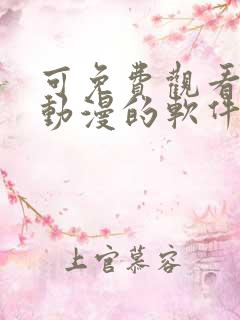 可免費觀看
動漫的軟件
上官慕容